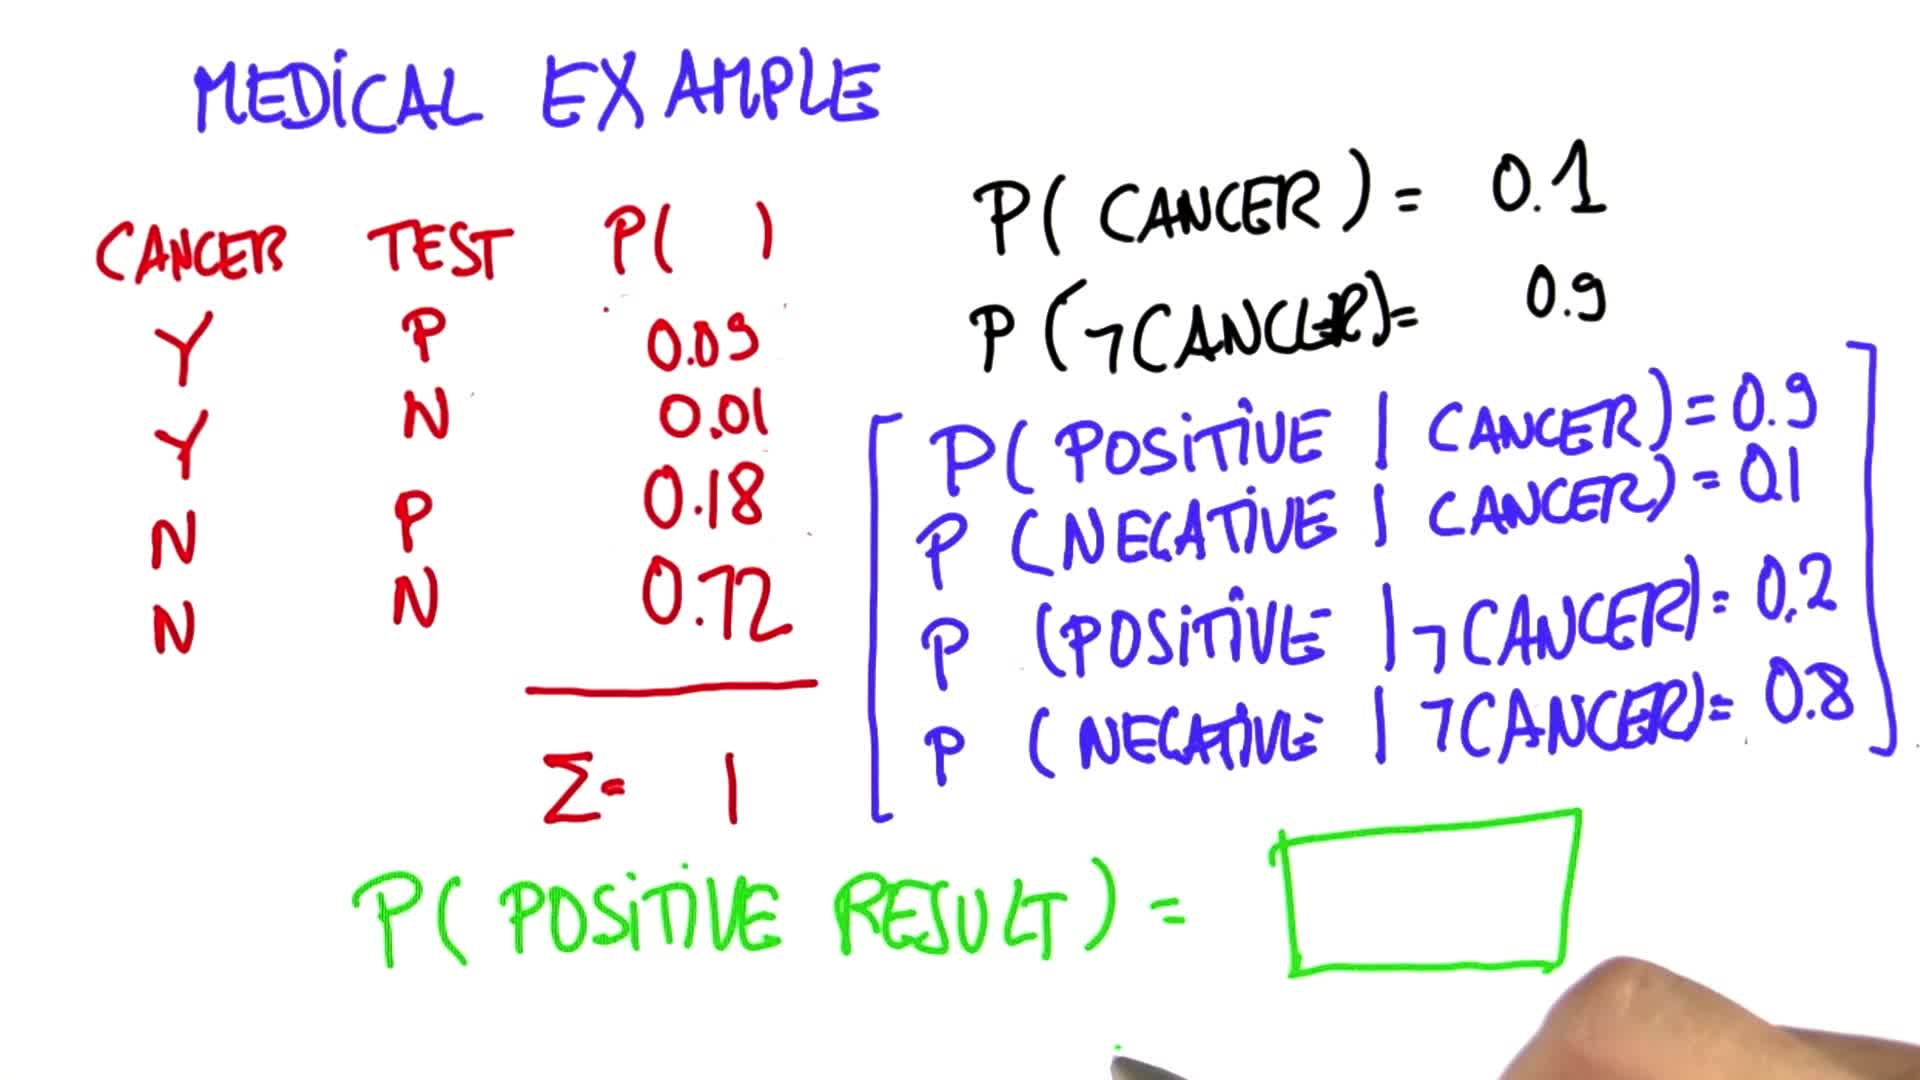 MEDICAL EXAMPLE
CANCER TEST P( )
Y P 0.09
Y N 0.01
N P 0.18
N N 0.72
Σ= 1
P( CANCER ) = 0.1
P (¬CANCER)= 0.9
P( POSITIVE | CANCER) = 0.9
P (NEGATIVE | CANCER) = 0.1
P (POSITIVE | ¬CANCER)= 0.2
P (NEGATIVE | ¬CANCER)= 0.8
P( POSITIVE RESULT ) =